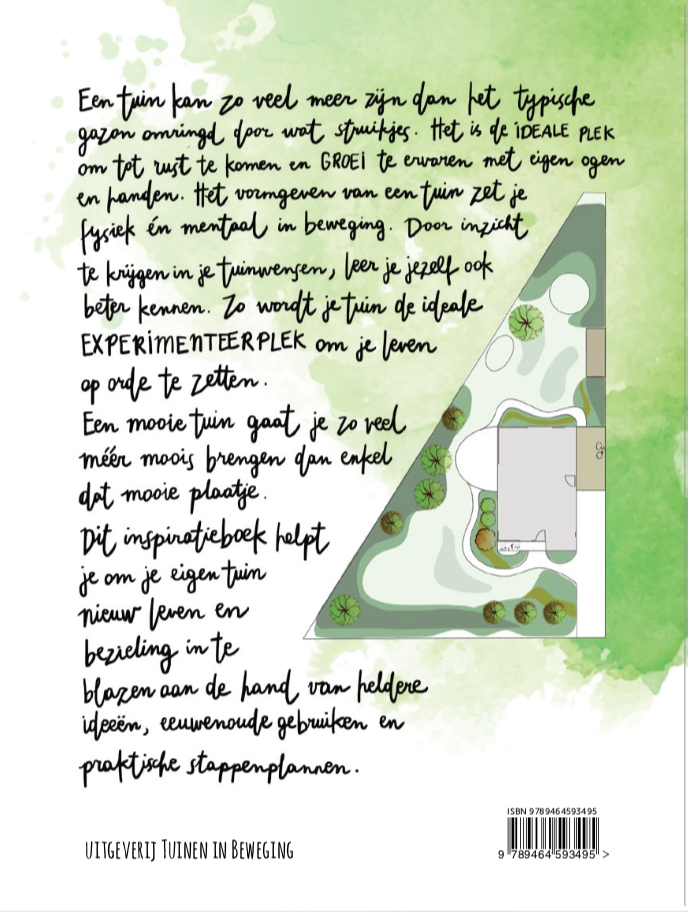 Een tuin kan zo veel meer zijn dan het typische
gazon omringd door wat struikjes. Het is de IDEALE PLEK
om tot rust te komen en GROEI te ervaren met eigen ogen
en handen. Het vormgeven van een tuin zet je
fysiek én mentaal in beweging. Door inzicht
te krijgen in je tuinwensen, leer je jezelf ook
beter kennen. Zo wordt je tuin de ideale
EXPERIMENTEERPLEK om je leven
op orde te zetten.
Een mooie tuin gaat je zo veel
méér moois brengen dan enkel
dat mooie plaatje.
Dit inspiratieboek helpt
je om je eigen tuin
nieuw leven en
bezieling in te
blazen aan de hand van heldere
ideeën, eeuwenoude gebruiken en
praktische stappenplannen.
ISBN 9789464593495
9 789464 593495 >
UITGEVERIJ TUINEN IN BEWEGING